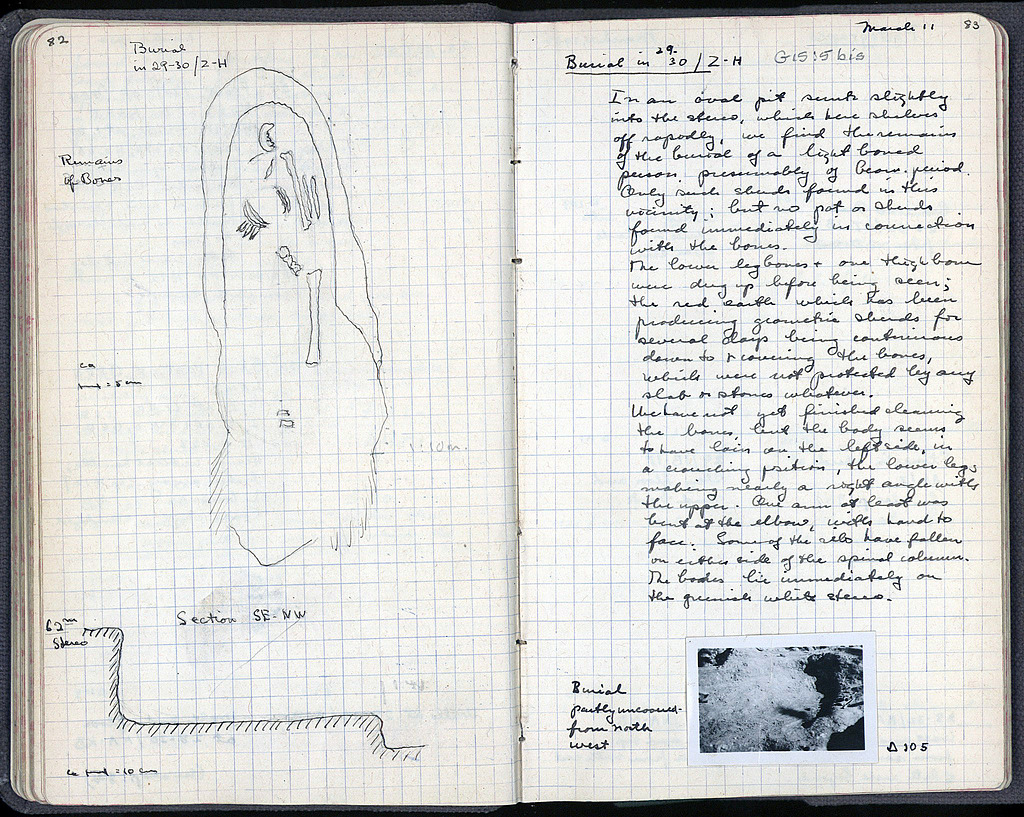 82
Burial
in 29-30/Z-H
Remains
of Bones
ca
= 5 cm
1.10m.
Section SE-NW
62m
Stereo
ca = 10 cm
March 11
83
Burial in 29-30/Z-H G15:5 bis
In an oval pit sunk slightly
into the stereo, which here shelves
off rapodly, we find the remains
of the burial of a light boned
person presumably of Geom. period.
Only such sherds found in this
vicinity; but no pot or sherds
found immediately in connection
with the bones.
The lower leg bones + one thigh bone
were dug up before being seen;
the red earth which has been
producing geometric sherds for
several days being continuous
down to & covering the bones,
which were not protected by any
slab or stones whatever.
We have not yet finished cleaning
the bones, but the body seems
to have lain on the left side, in
a crouching position, the lower legs
making nearly a right angle with
the upper. One arm at least was
bent at the elbow, with hand to
face. Some of the ribs have fallen
on either side of the spinal column.
The bodies lie immediately on
the greenish white stereo.
Burial
partly uncovered
from north
west
Δ 105